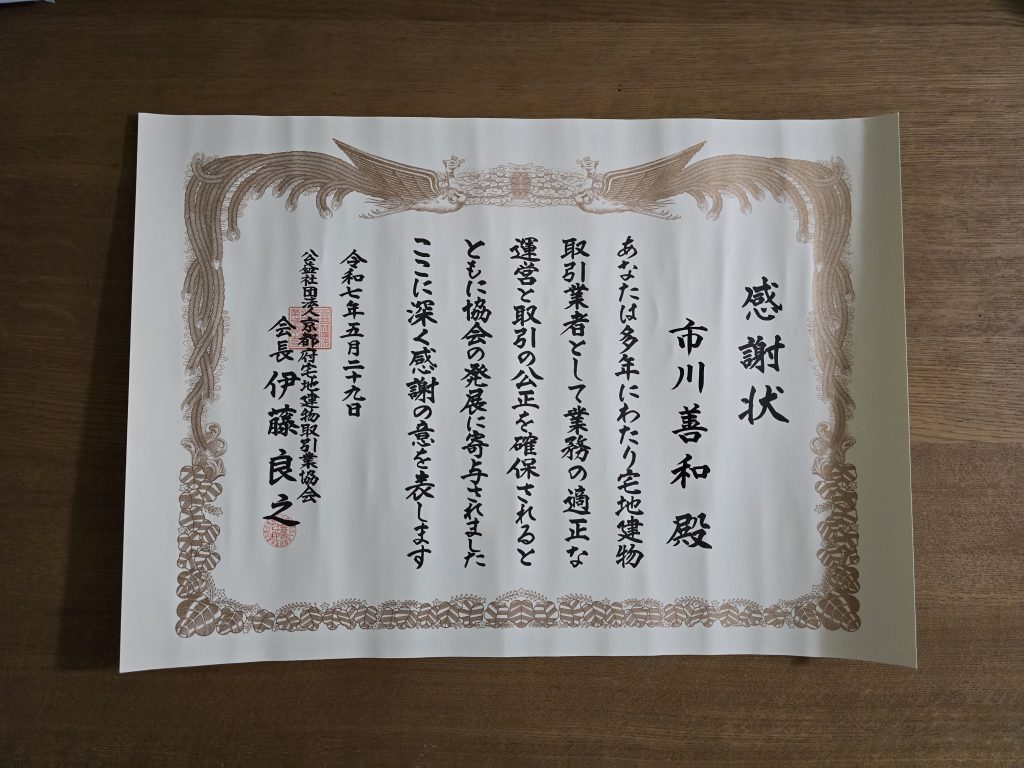 感謝状
市川善和殿
あなたは多年にわたり宅地建物
取引業者として業務の適正な
運営と取引の公正を確保されると
ともに協会の発展に寄与されました
ここに深く感謝の意を表します
令和七年五月二十九日
公益社団法人京都府宅地建物取引業協会
会長伊藤良之